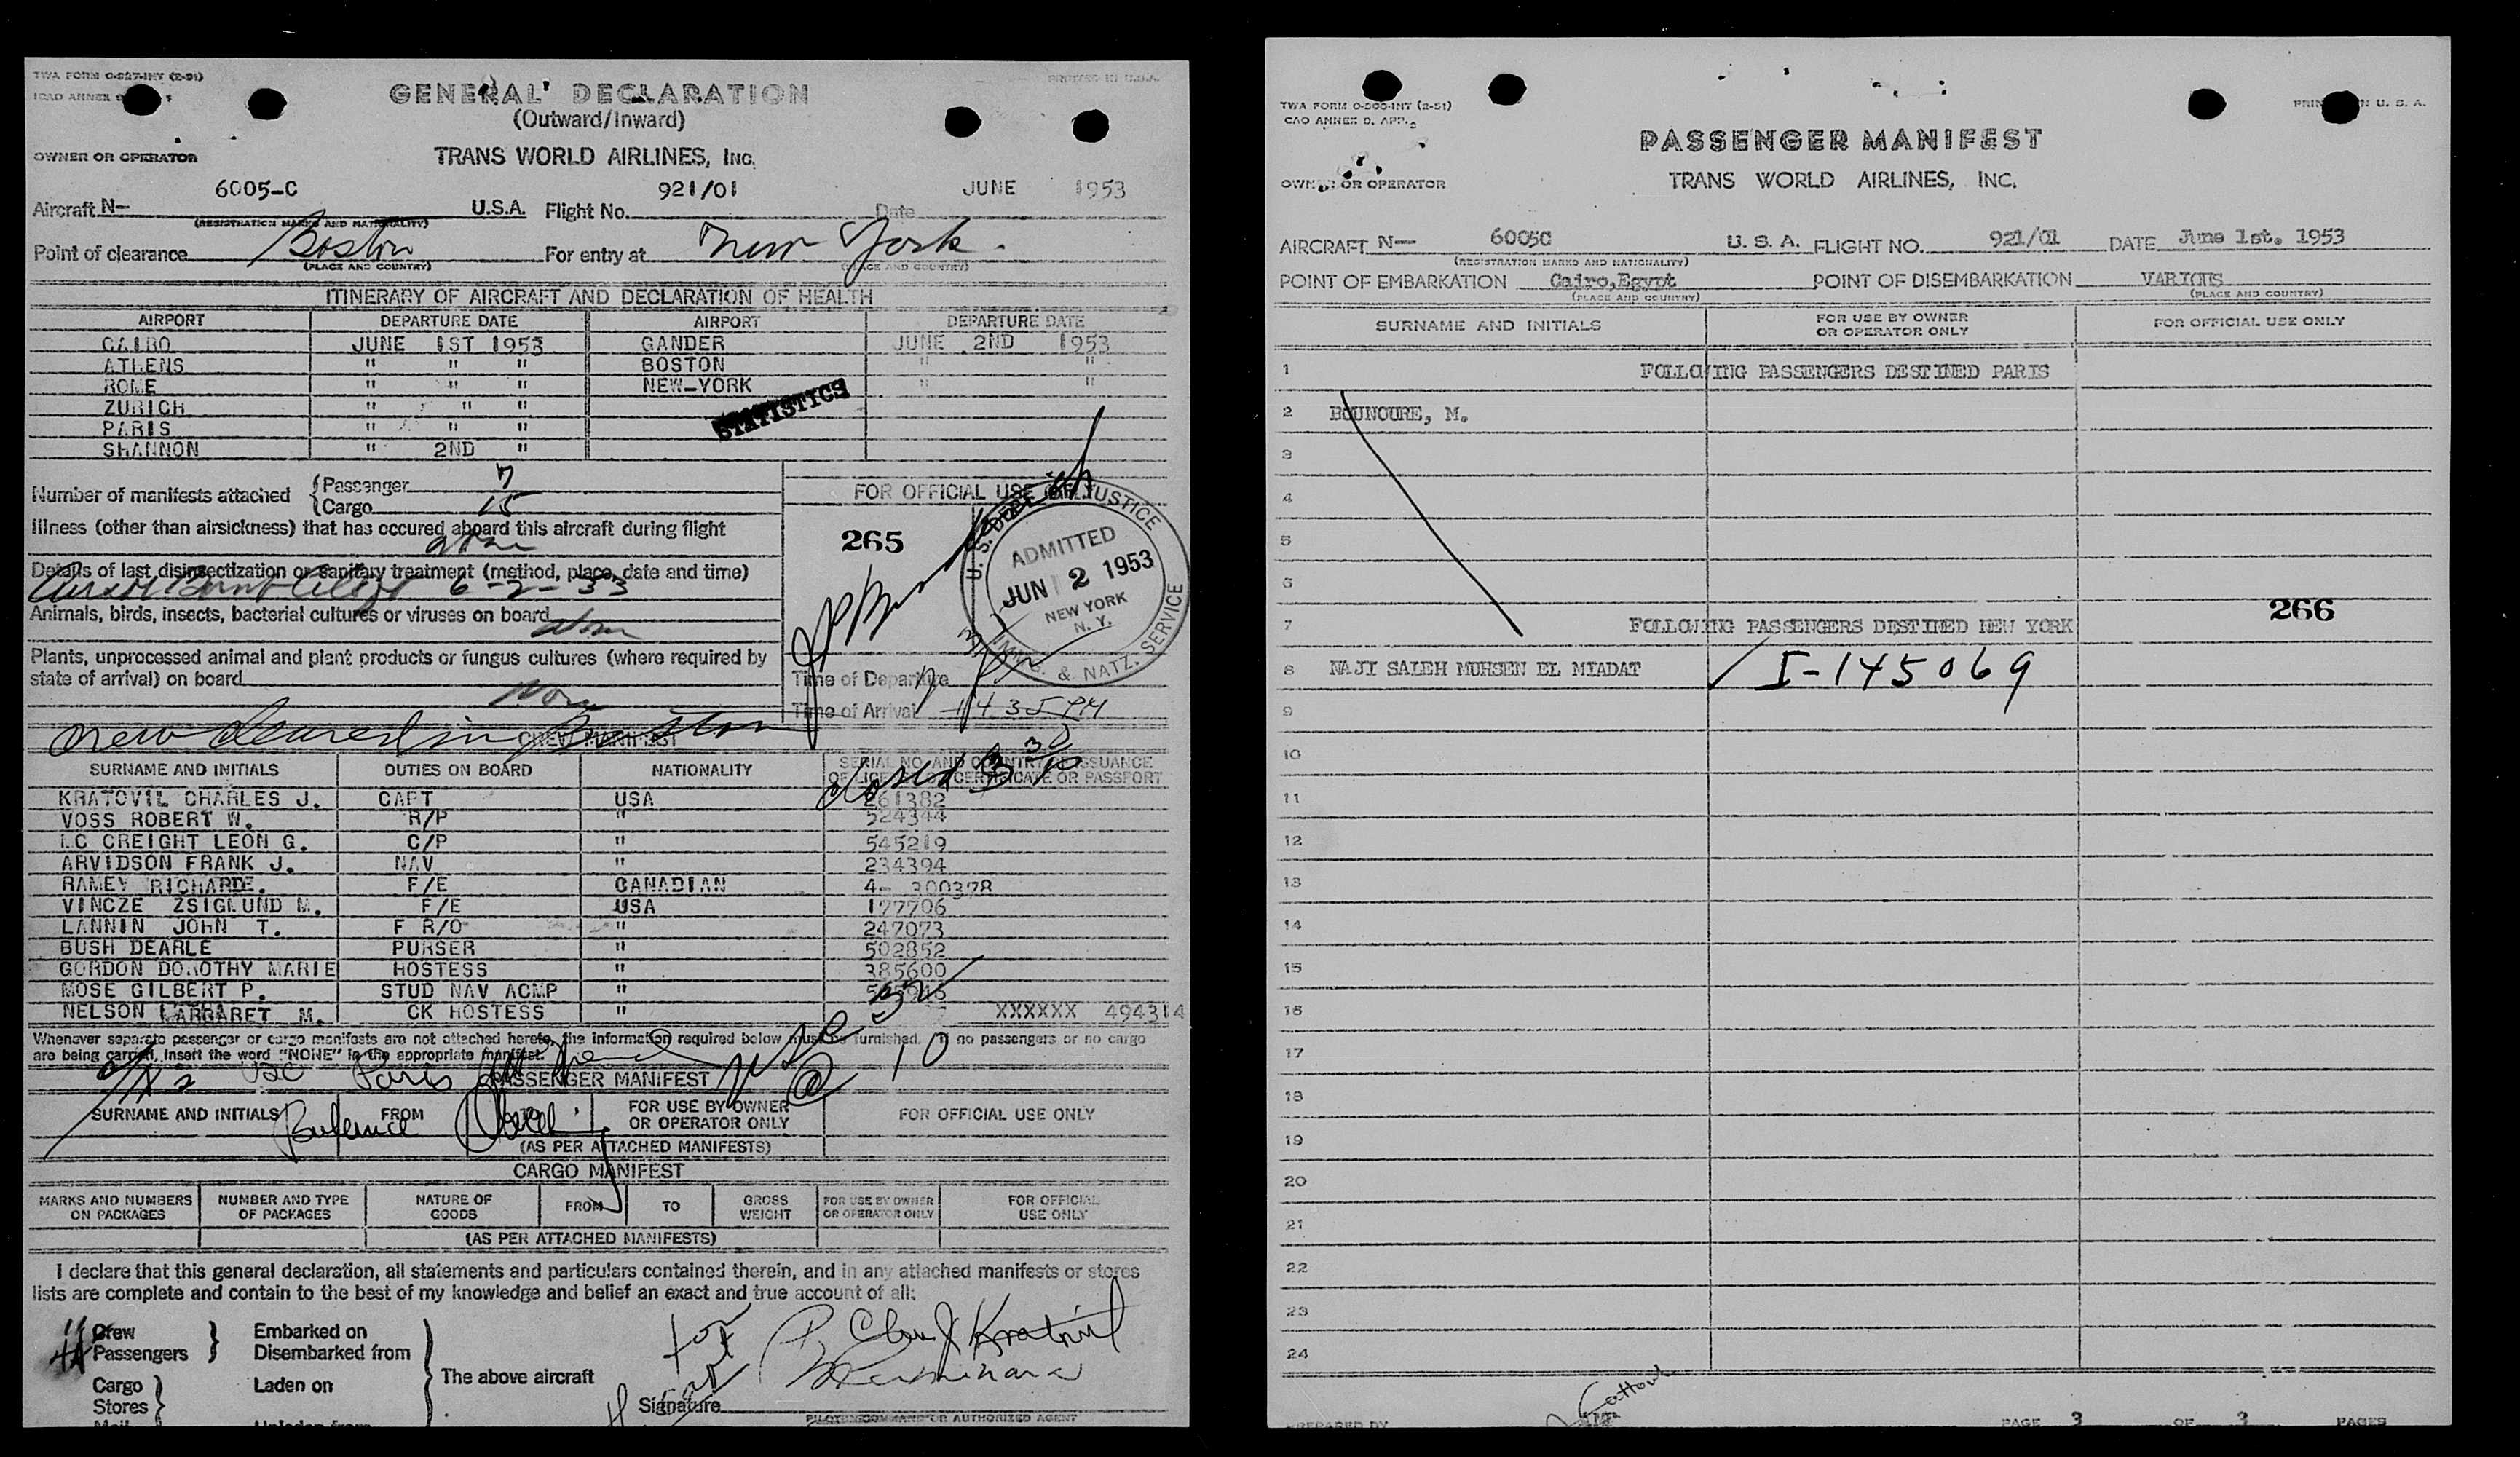 TWA FORM O-927-INT (2-51)
PRINTED IN U.S.A.
ICAO ANNEX
GENERAL DECLARATION
(Outward/Inward)
OWNER OR OPERATOR
TRANS WORLD AIRLINES, INC.
Aircraft N— 6005-C U.S.A. Flight No. 921/01 Date JUNE 1953
(REGISTRATION MARKS AND NATIONALITY)
Point of clearance Boston For entry at New York.
(PLACE AND COUNTRY) (PLACE AND COUNTRY)
ITINERARY OF AIRCRAFT AND DECLARATION OF HEALTH
AIRPORT DEPARTURE DATE AIRPORT DEPARTURE DATE
CAIRO JUNE 1ST 1953 GANDER JUNE 2ND 1953
ATHENS " " " BOSTON " "
ROME " " " NEW-YORK " "
ZURICH " " "
STATISTICS
PARIS " " "
SHANNON " 2ND "
Number of manifests attached { Passenger 7
Cargo 15
FOR OFFICIAL USE ONLY
Illness (other than airsickness) that has occured aboard this aircraft during flight
none
265
U. S. DEPT. OF JUSTICE
ADMITTED
JUN 2 1953
NEW YORK
N. Y.
IMM. & NATZ. SERVICE
Details of last disinsectization or sanitary treatment (method, place, date and time)
6-2-53
Animals, birds, insects, bacterial cultures or viruses on board none
Plants, unprocessed animal and plant products or fungus cultures (where required by
state of arrival) on board None
Time of Departure
Time of Arrival 435 PM
crew cleared in Boston
CREW MANIFEST
closed 3 30
SURNAME AND INITIALS DUTIES ON BOARD NATIONALITY SERIAL NO. AND COUNTRY OF ISSUANCE
OF LICENSE OR CERTIFICATE OR PASSPORT
KRATOVIL CHARLES J. CAPT USA 261382
VOSS ROBERT W. R/P " 524344
MC CREIGHT LEON G. C/P " 545219
ARVIDSON FRANK J. NAV " 234394
RAMEY RICHARD E. F/E CANADIAN 4- 300378
VINCZE ZSIGMUND M. F/E USA 177706
LANNIN JOHN T. F R/O " 247073
BUSH DEARLE PURSER " 502852
GORDON DOROTHY MARIE HOSTESS " 385600
MOSE GILBERT P. STUD NAV ACMP "
NELSON MARGARET M. CK HOSTESS " XXXXXX 494314
Whenever separate passenger or cargo manifests are not attached hereto, the information required below must be furnished. If no passengers or no cargo
are being carried, insert the word "NONE" in the appropriate manifest.
Paris
PASSENGER MANIFEST
10
SURNAME AND INITIALS FROM TO FOR USE BY OWNER
OR OPERATOR ONLY FOR OFFICIAL USE ONLY
(AS PER ATTACHED MANIFESTS)
CARGO MANIFEST
MARKS AND NUMBERS
ON PACKAGES NUMBER AND TYPE
OF PACKAGES NATURE OF
GOODS FROM TO GROSS
WEIGHT FOR USE BY OWNER
OR OPERATOR ONLY FOR OFFICIAL
USE ONLY
(AS PER ATTACHED MANIFESTS)
I declare that this general declaration, all statements and particulars contained therein, and in any attached manifests or stores
lists are complete and contain to the best of my knowledge and belief an exact and true account of all:
11 Crew
Passengers
} Embarked on
Disembarked from
Cargo
Stores
Mail
} Laden on
Unladen from
} The above aircraft
Signature
PILOT IN COMMAND OR AUTHORIZED AGENT
TWA FORM O-500-INT (2-51)
PRINTED IN U. S. A.
CAO ANNEX 9, APP.
PASSENGER MANIFEST
OWNER OR OPERATOR
TRANS WORLD AIRLINES, INC.
AIRCRAFT N— 6005C U. S. A. FLIGHT NO. 921/01 DATE June 1st. 1953
(REGISTRATION MARKS AND NATIONALITY)
POINT OF EMBARKATION Cairo,Egypt POINT OF DISEMBARKATION VARIOUS
(PLACE AND COUNTRY) (PLACE AND COUNTRY)
SURNAME AND INITIALS FOR USE BY OWNER
OR OPERATOR ONLY FOR OFFICIAL USE ONLY
1 FOLLOWING PASSENGERS DESTINED PARIS
2 BOUNOURE, M.
3
4
5
6
266
7 FOLLOWING PASSENGERS DESTINED NEW YORK
8 NAJI SALEH MUHSEN EL MIADAT I-145069
9
10
11
12
13
14
15
16
17
18
19
20
21
22
23
24
PREPARED BY
PAGE 3 OF 3 PAGES